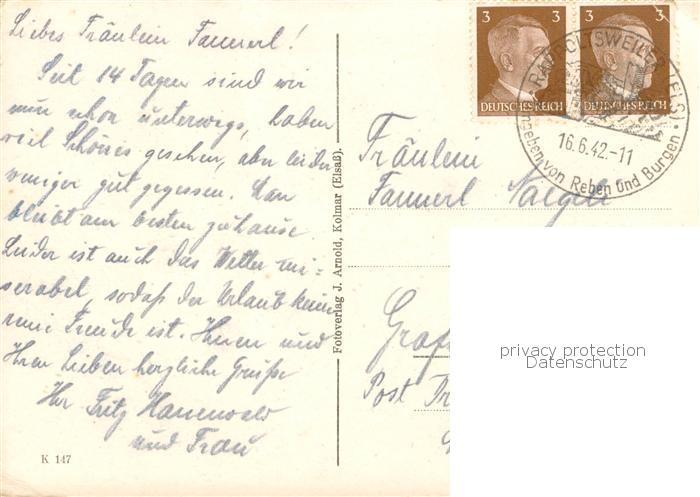 Liebes Fräulein Fannerl!
Seit 14 Tagen sind wir
nun schon unterwegs, haben
viel Schönes gesehen, aber leider
weniger gut gegessen. Man
bleibt am besten zuhause.
Leider ist auch das Wetter mi-
serabel, sodaß der Urlaub keine
reine Freude ist. Ihnen und
Ihren Lieben herzliche Grüße
Ihr Fritz Hanenwald
und Frau
K 147
Fotoverlag J. Arnold, Kolmar (Elsaß).
3 3
DEUTSCHES REICH
3 3
DEUTSCHES REICH
RAPPOLTSWEILER (ELS)
16.6.42.-11
umgeben von Reben und Burgen
Fräulein
Fannerl Naegele
Graf
Post
privacy protection
Datenschutz